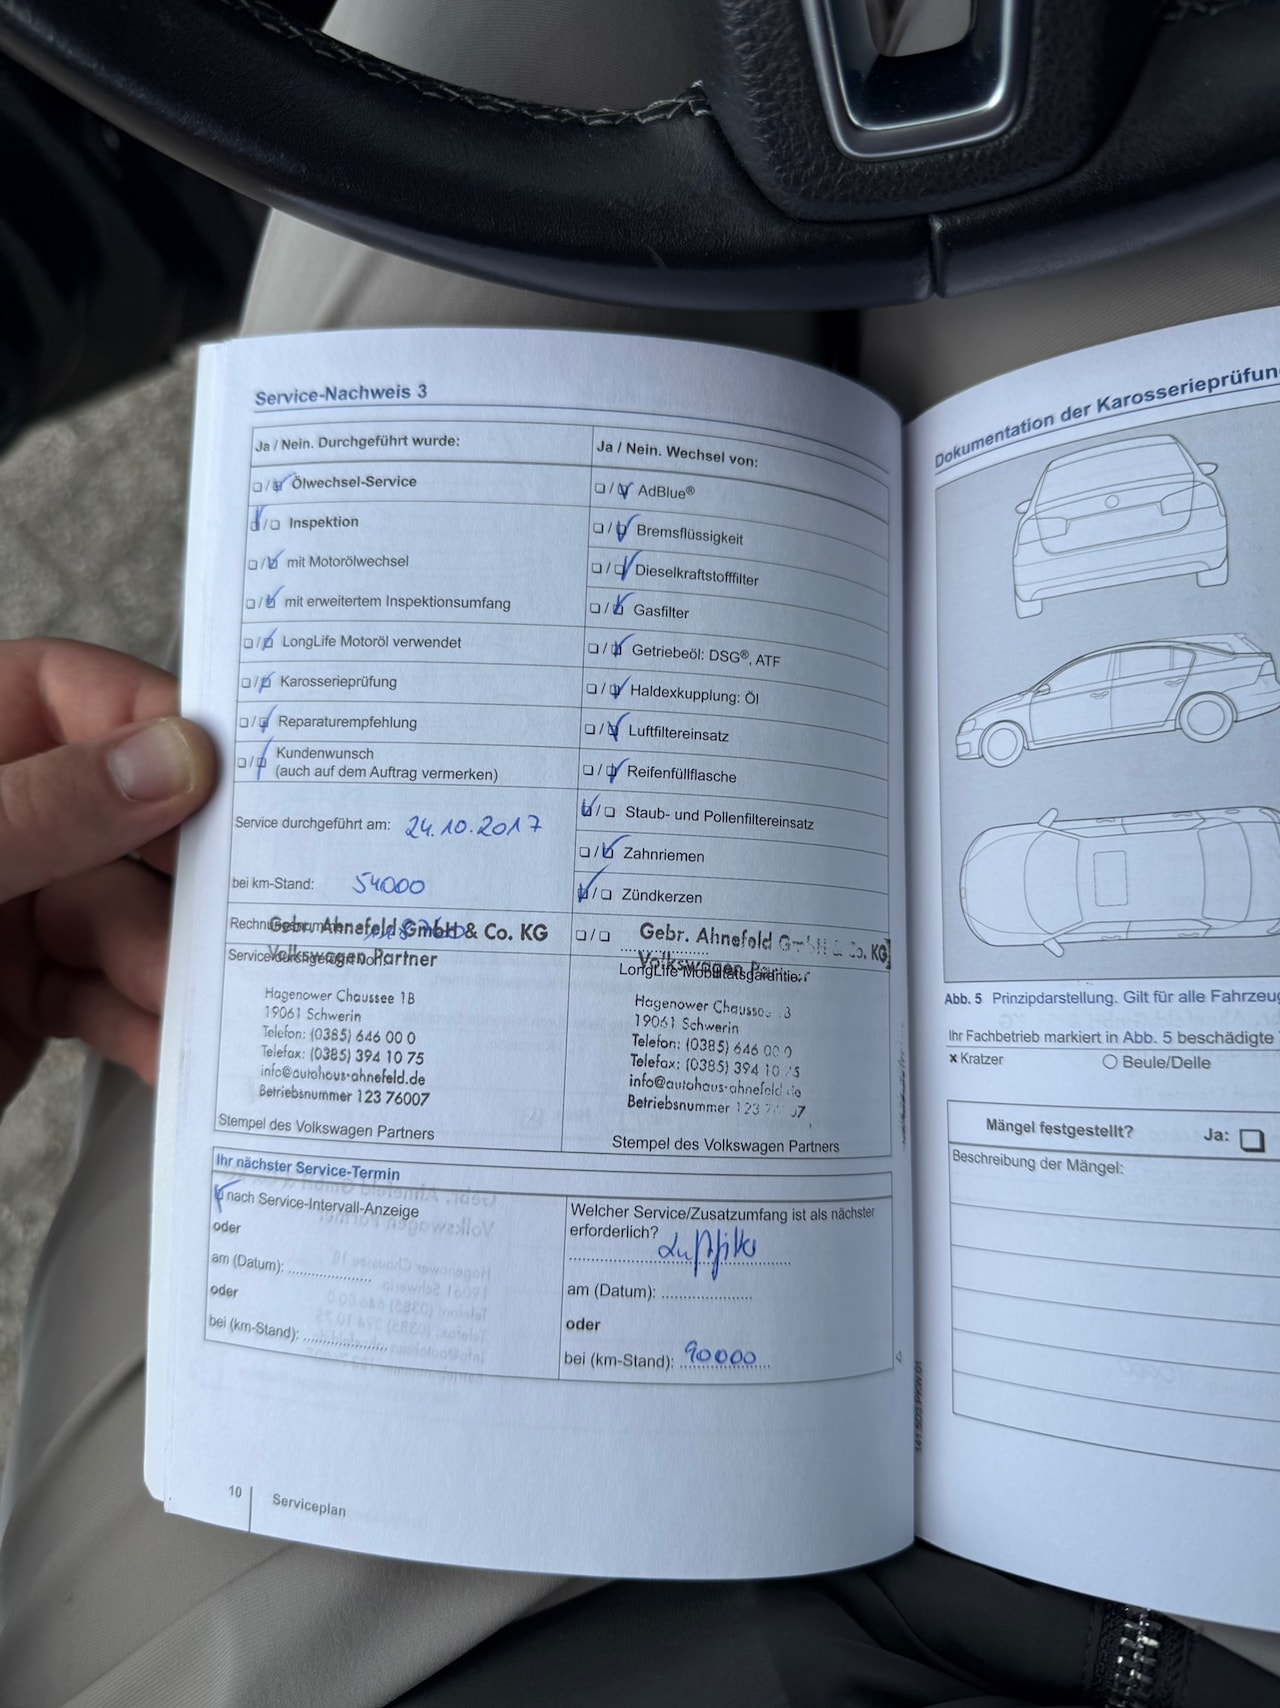 Service-Nachweis 3
Ja / Nein. Durchgeführt wurde:
❏ / ❏ Ölwechsel-Service
❏ / ❏ Inspektion
❏ / ❏ mit Motorölwechsel
❏ / ❏ mit erweitertem Inspektionsumfang
❏ / ❏ LongLife Motoröl verwendet
❏ / ❏ Karosserieprüfung
❏ / ❏ Reparaturempfehlung
❏ / ❏ Kundenwunsch
(auch auf dem Auftrag vermerken)
Service durchgeführt am: 24.10.2017
bei km-Stand: 54000
Gebr. Ahnefeld GmbH & Co. KG
Volkswagen Partner
Hagenower Chaussee 1B
19061 Schwerin
Telefon: (0385) 646 00 0
Telefax: (0385) 394 10 75
info@autohaus-ahnefeld.de
Betriebsnummer 123 76007
Stempel des Volkswagen Partners
Ja / Nein. Wechsel von:
❏ / ❏ AdBlue®
❏ / ❏ Bremsflüssigkeit
❏ / ❏ Dieselkraftstofffilter
❏ / ❏ Gasfilter
❏ / ❏ Getriebeöl: DSG®, ATF
❏ / ❏ Haldexkupplung: Öl
❏ / ❏ Luftfiltereinsatz
❏ / ❏ Reifenfüllflasche
❏ / ❏ Staub- und Pollenfiltereinsatz
❏ / ❏ Zahnriemen
❏ / ❏ Zündkerzen
❏ / ❏
Gebr. Ahnefeld GmbH & Co. KG
Volkswagen Partner
LongLife Mobilitätsgarantie:
Hagenower Chaussee 1B
19061 Schwerin
Telefon: (0385) 646 00 0
Telefax: (0385) 394 10 75
info@autohaus-ahnefeld.de
Betriebsnummer 123 76007
Stempel des Volkswagen Partners
Ihr nächster Service-Termin
❏ nach Service-Intervall-Anzeige
oder
am (Datum):
oder
bei (km-Stand):
Welcher Service/Zusatzumfang ist als nächster
erforderlich?
Luftfilter
am (Datum):
oder
bei (km-Stand): 90000
10 Serviceplan
Dokumentation der Karosserieprüfun
Abb. 5 Prinzipdarstellung. Gilt für alle Fahrzeu
Ihr Fachbetrieb markiert in Abb. 5 beschädigte
× Kratzer ○ Beule/Delle
Mängel festgestellt? Ja: ❏
Beschreibung der Mängel: